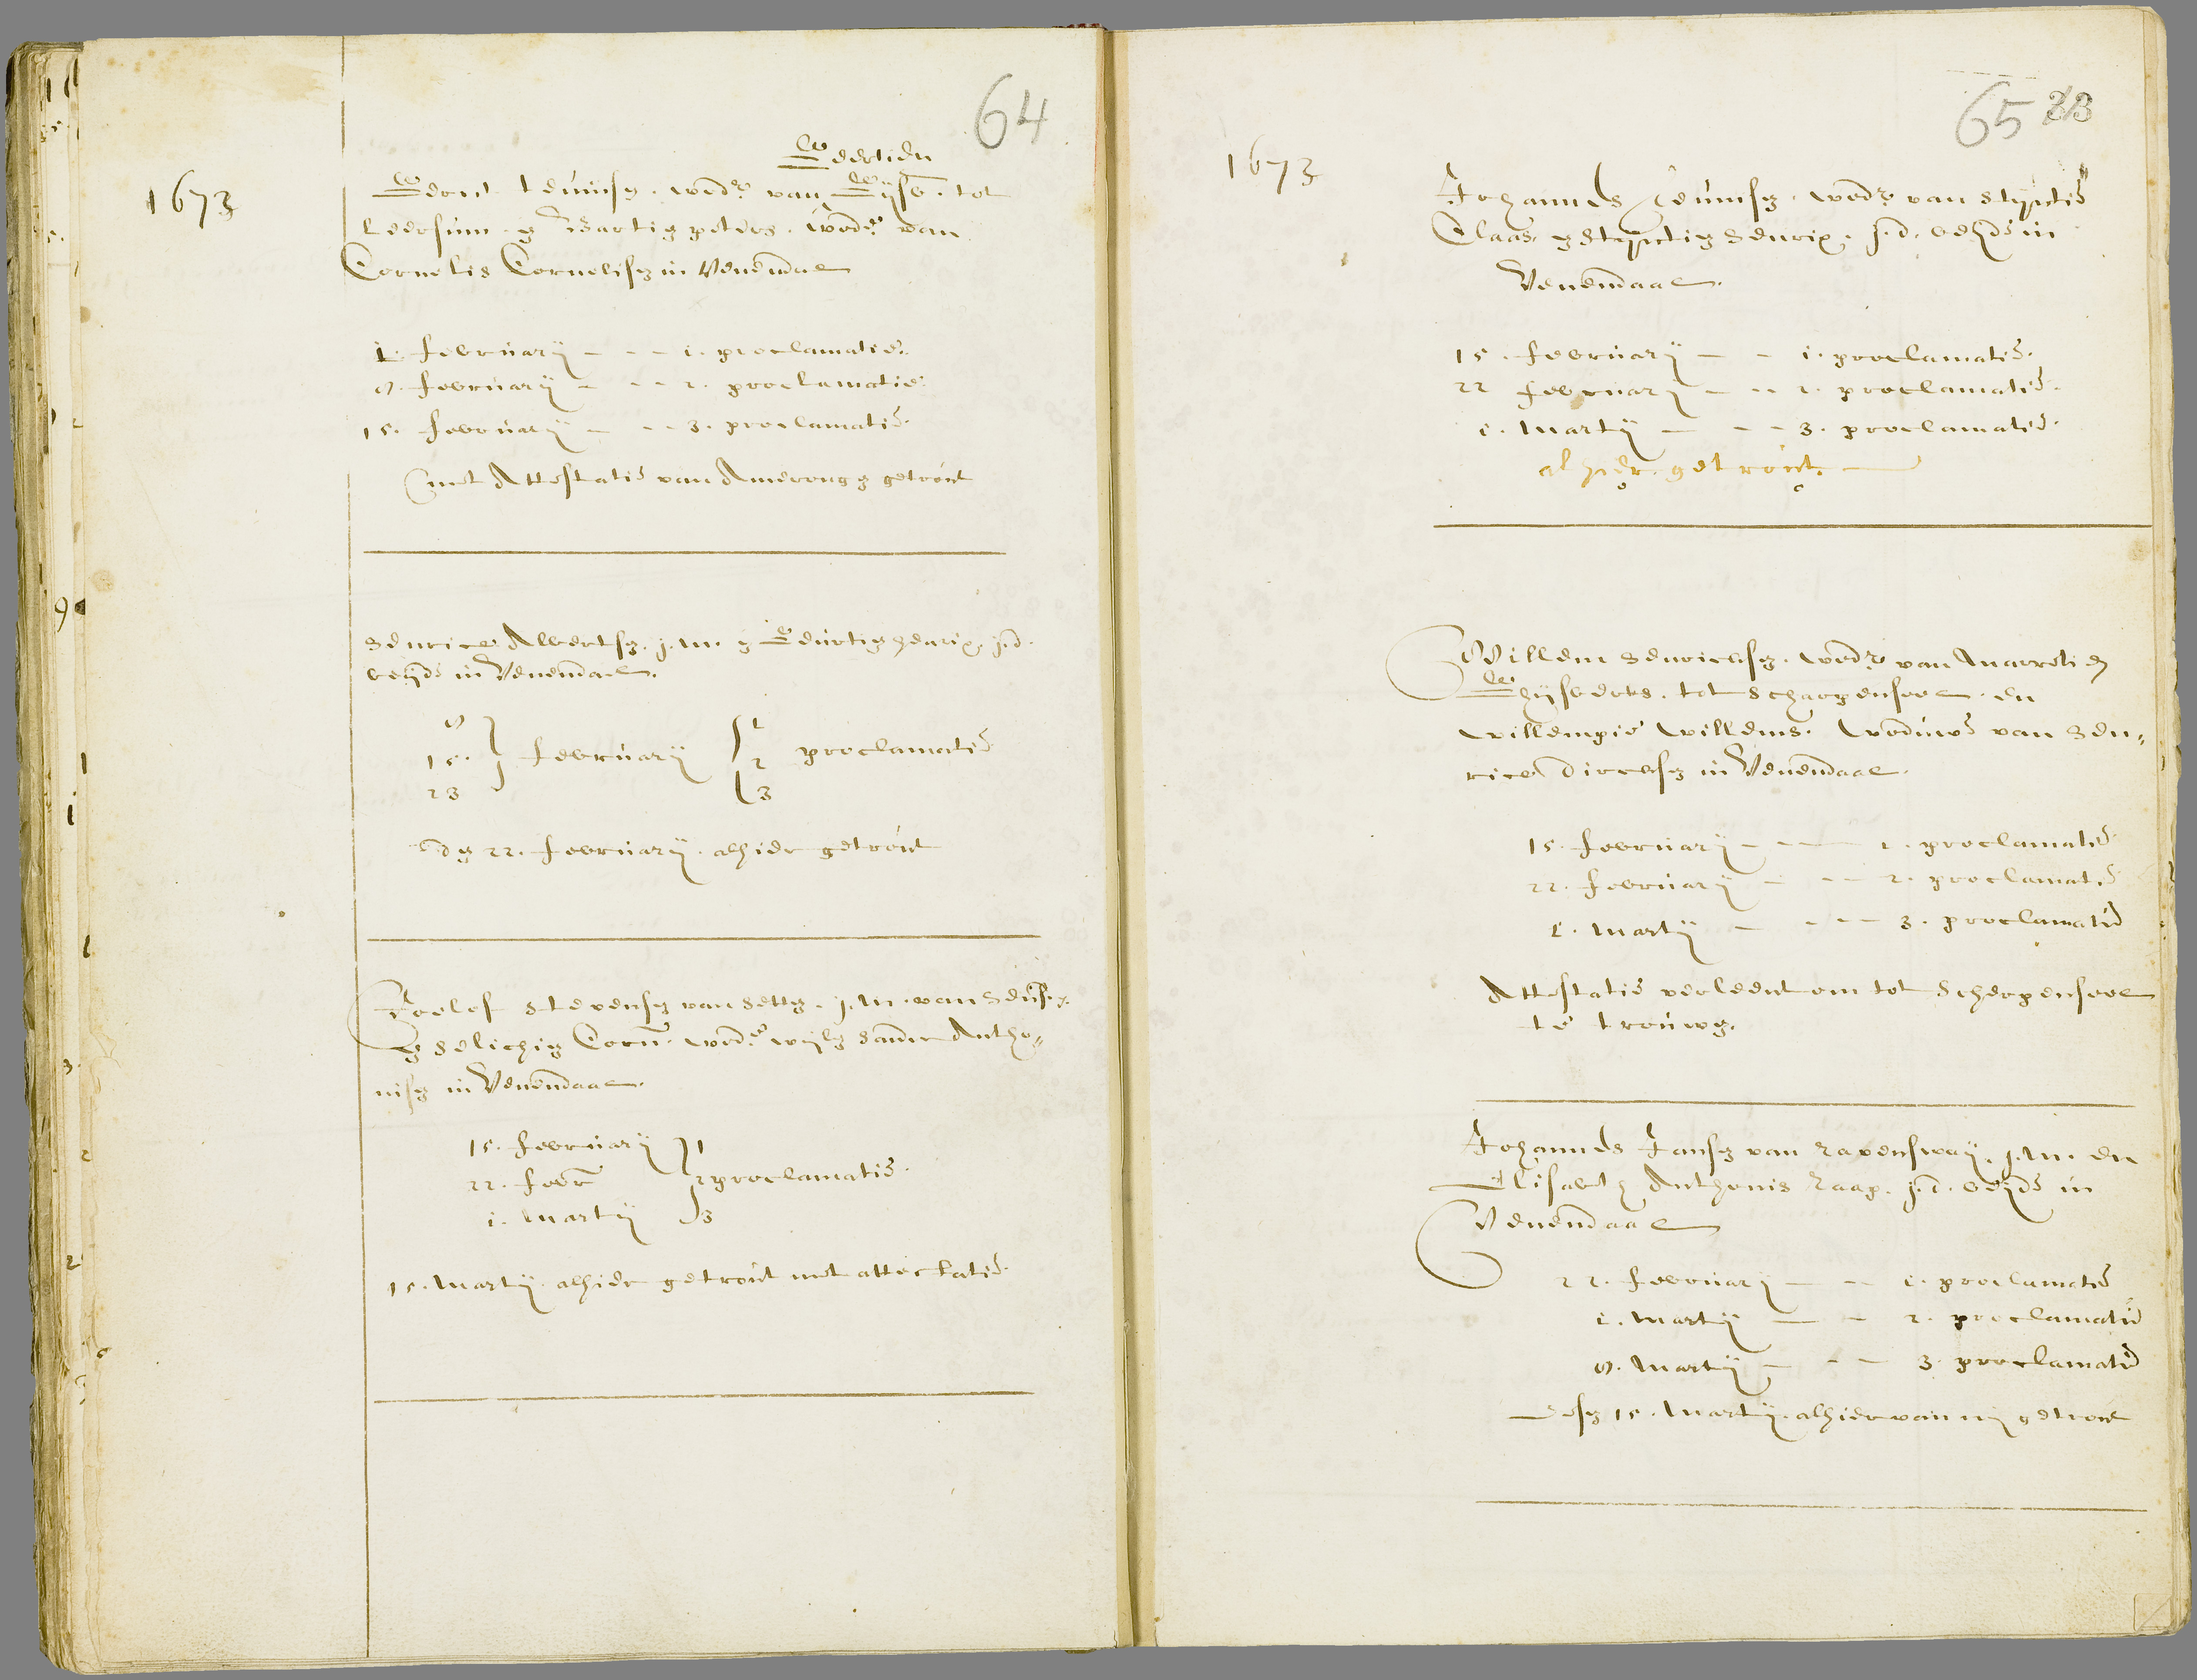 64
1673
Geertien
Geurt teunisz. wedr. van Gijsb. tot
Leersum. en Bartien peters. wede. van
Cornelis Cornelisz in Venendael
1. february - - - 1. proclamatie.
8. february - - - 2. proclamatie.
15. february - - - 3. proclamatie.
met Attestatie van Amerongen getrout
Henrick Albertsz. j.m. en Geurtien henrix. j.d.
beijde in Venendael.
8
15. february 2 proclamatie
23 3
den 22. february. alhier getrout
Roelof Stevensz van Setten. j.m. van
en Selichien Corn. wede. wijlen Sander Antho„
nisz in Venendaal.
15. february 1
22. febr. 2 proclamatie.
1. Marty 3
15. Marty. alhier getrout met attestatie.
65
1673
Johannes teunisz. wedr. van Stijntie
Claas. en Stijntien Henrix. j.d. beijde in
Venendaal.
15. february - - 1. proclamatie.
22 february - - 2. proclamatie.
1. Marty - - - 3. proclamatie.
alhier. getrout.
Willem Henricksz. wedr. van Marretien
Ghijsberts. tot Scharpenseel. en
Willempie Willems. Weduwe van Hen„
rick Dircksz in Venendaal.
15. february - - - 1. proclamatie.
22. february - - - 2. proclamatie
1. Marty - - - 3. proclamatie
Attestatie verleent om tot Scherpenseel
te trouwen.
Johannes Jansz van Ravenswaij. j.m. en
Elisabeth Anthonis Raap. j.d. beijde in
Venendaal
22. february - - 1. proclamatie
1. Marty - - 2. proclamatie
8. Marty - - - 3. proclamatie
desen 15. Marty. alhier van mij getrout